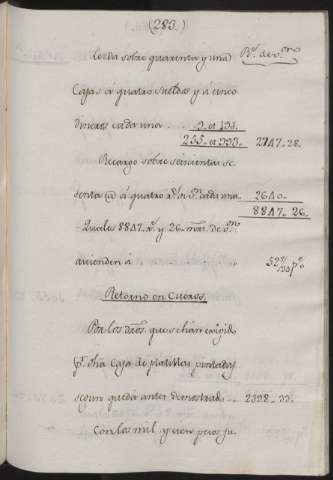 (283.)
sobre quarenta y una R.s de v.on
Cajas á quatro sueldos y cinco
dineros cada una
255 2747-28.
Recargo sobre seiscientas se
senta @ á quatro r.s v.on cada una 2640-
8847-26.
Quales 8847 r.s y 26 mar.s de v.on
ascienden á
Retorno en Cueros.
Por los dros. que se han exigido
p.r dha Caja de platillas pintadas
segun queda antes demostrado 2398-33.
Con los mil y cien pesos fu